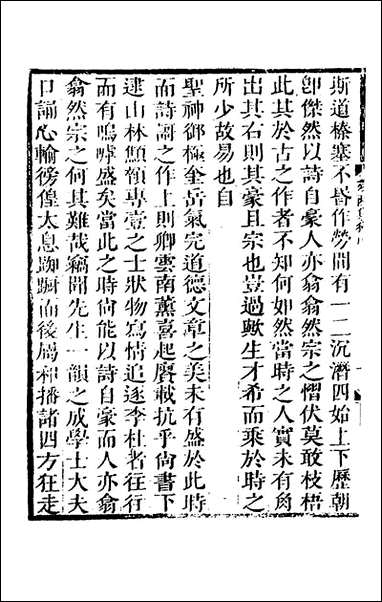 斯道榛塞不啻作勞間有一二沉濟四始上下歷朝
卽傑然以詩自豪人亦翕翕然宗之慴伏莫敢枝梧
此其於古之作者不知何如然當時之人實未有角
出其右則其豪且宗也豈過歟生才希而乘於時之
所少故易也自
聖神御極全岳氣完道德文章之美未有盛於此時
而詩謌之作上則卿雲南薰喜起賡載抗乎尙書下
逮山林顛領專壹之士狀物寫情追逐李杜者往行
而有嗚虖盛矣當此之時尙能以詩自豪而人亦翕
翕然宗之何其難哉竊聞先生一韻之成學士大夫
口誦心輸徬徨太息踟躕而後屬和播諸四方狂走